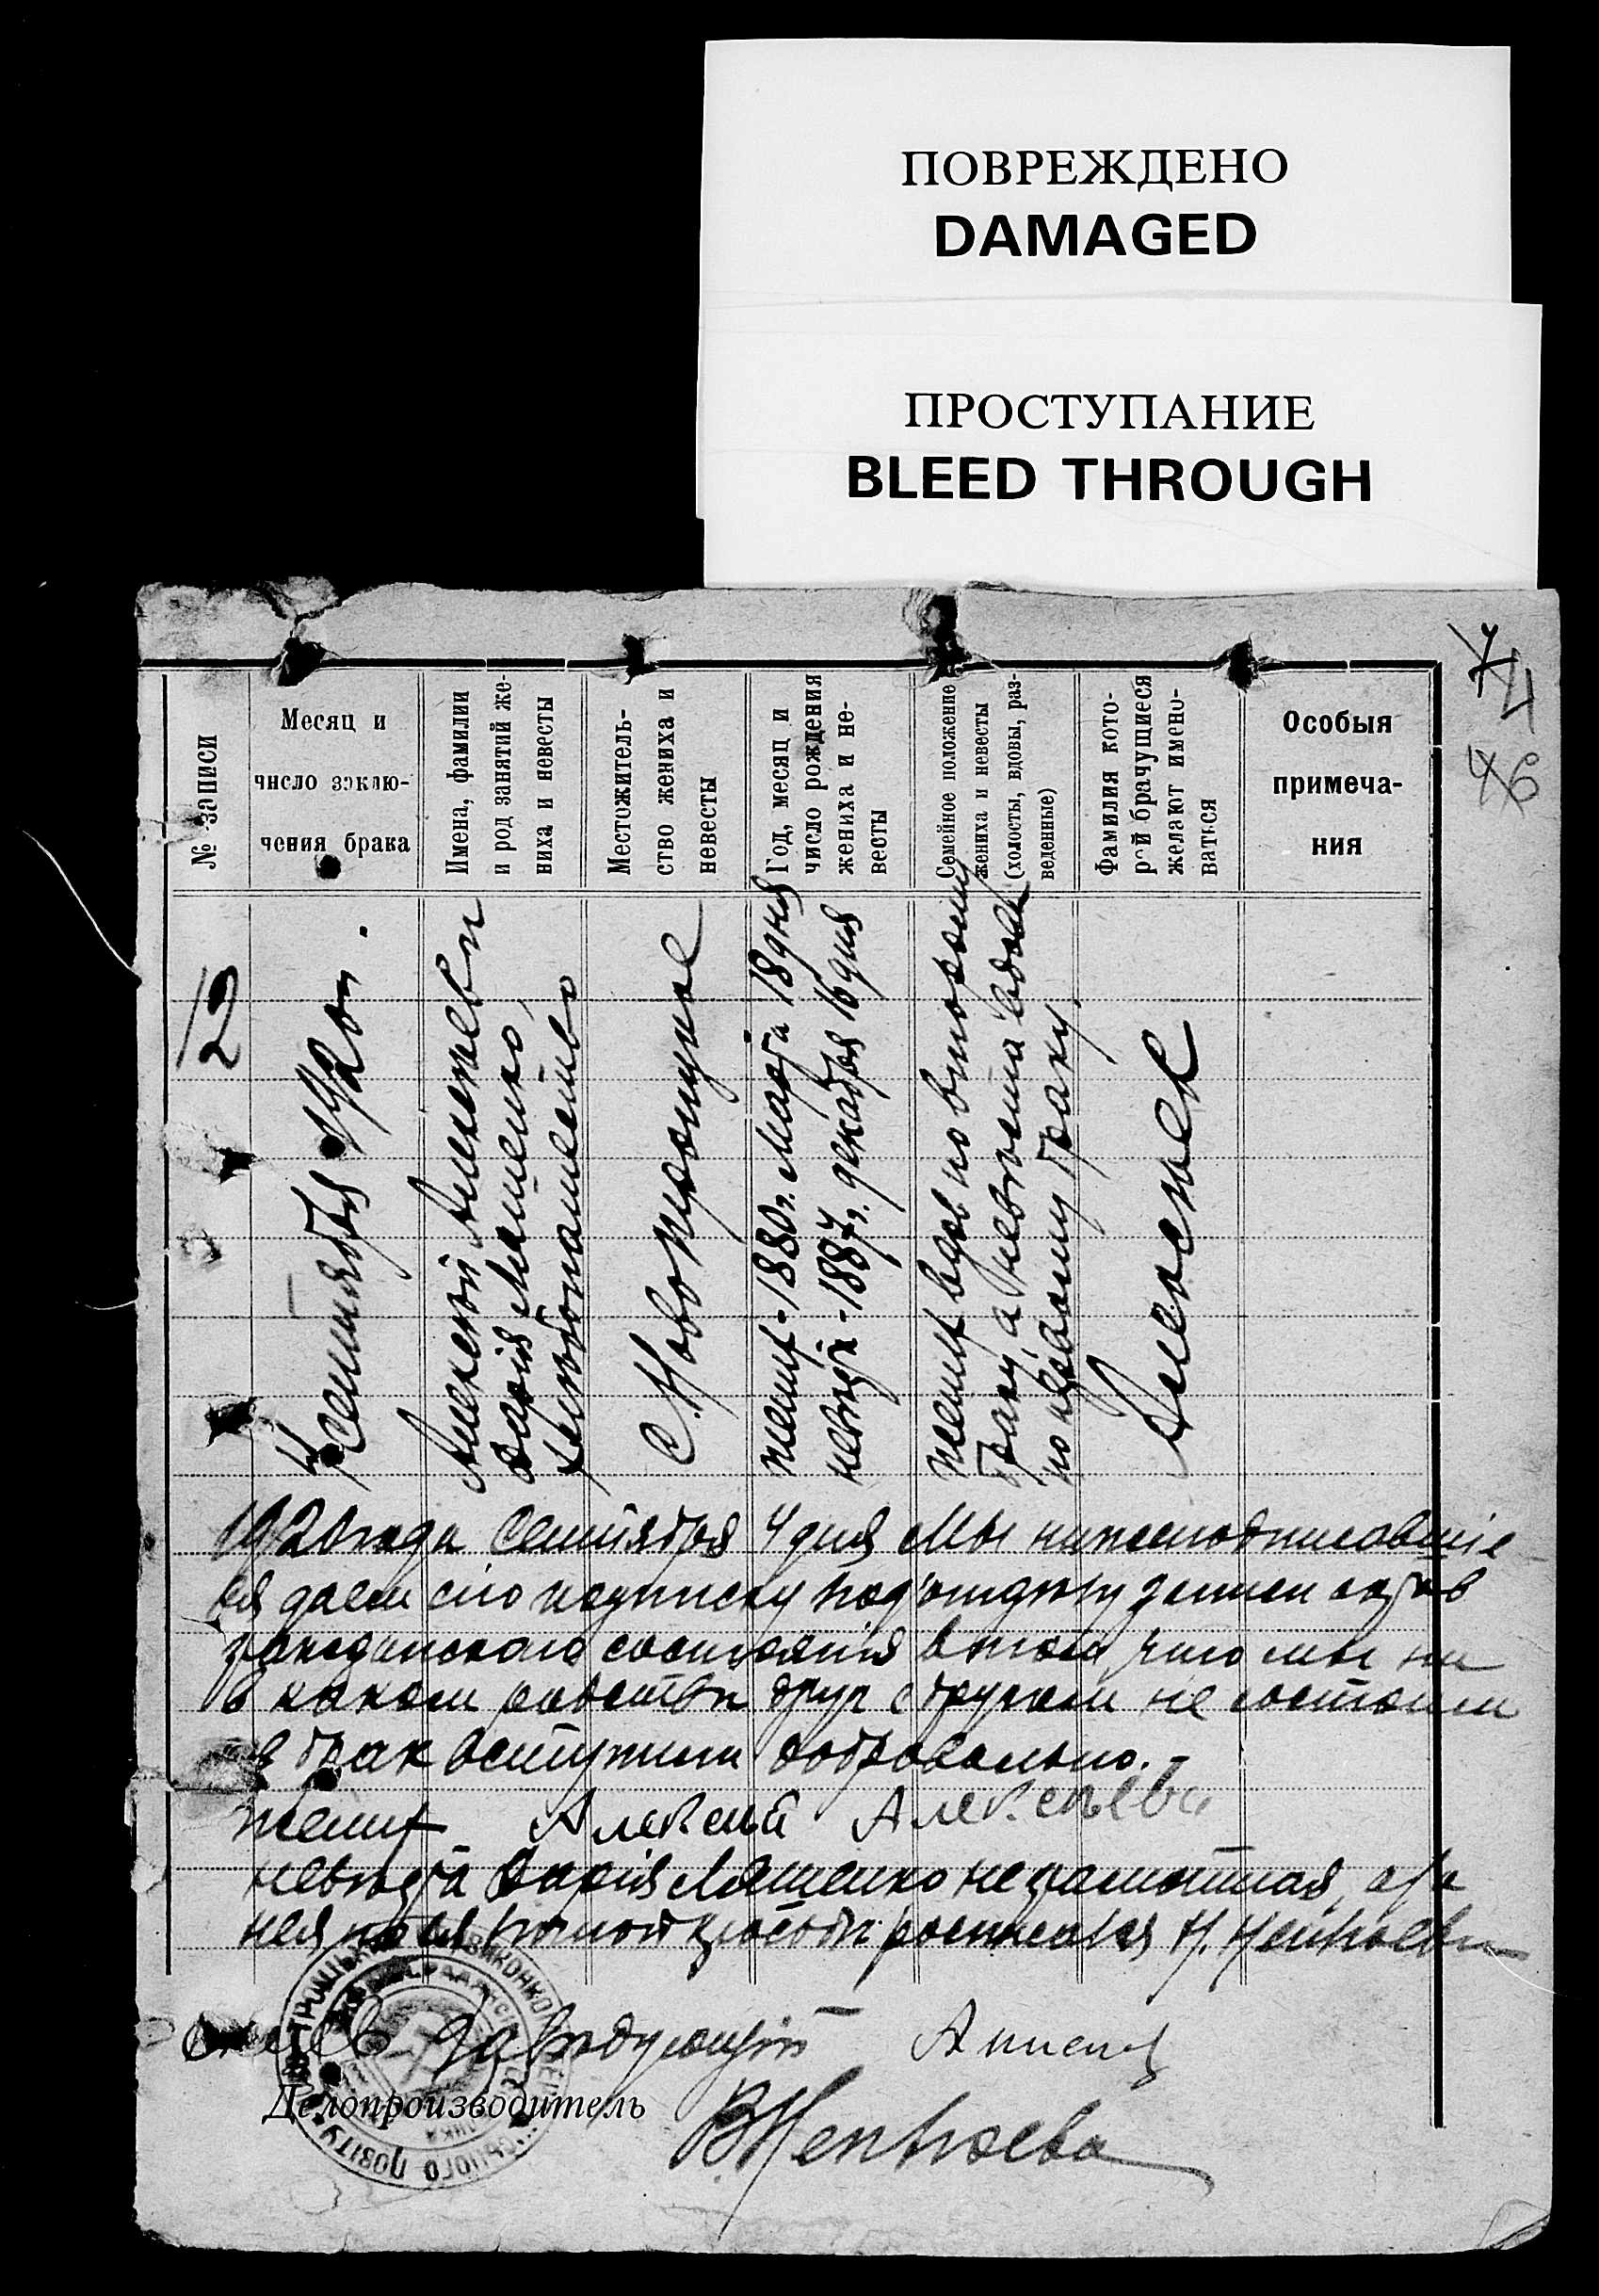 ПОВРЕЖДЕНО
DAMAGED
ПРОСТУПАНИЕ
BLEED THROUGH
74
46
№ записи
Месяц и
число заклю-
чения брака
Имена, фамилии
и род занятий же-
ниха и невесты
Местожитель-
ство жениха и
невесты
Год, месяц и
число рождения
жениха и не-
весты
Семейное положение
жениха и невесты
(холосты, вдовы, раз-
веденные)
Фамилия кото-
рой брачущиеся
желают имено-
ваться
Особыя
примеча-
ния
12
4 сентября 1920 г.
Алексей Алексеев и
Дария Ляшенко,
хлебопашество
с. Новотроицкое
жених - 1880 г. Марта 18 дня
невеста - 1887 г. декабря 16 дня
жених вдов по второму
браку, а невеста вдова
по первому браку.
1920 года Сентября 4 дня Мы нижеподписавшие
ся даем сию подписку под'отделу записи актов
гражданского состояния в том, что мы ни
в каком родстве друг с другом не состоим
в брак вступили добровольно. -
жених Алексей Алексеева
невеста Дария Ляшенко неграмотная, а за
нея по ея просьбе росписался Н.
Заведующий
Делопроизводитель